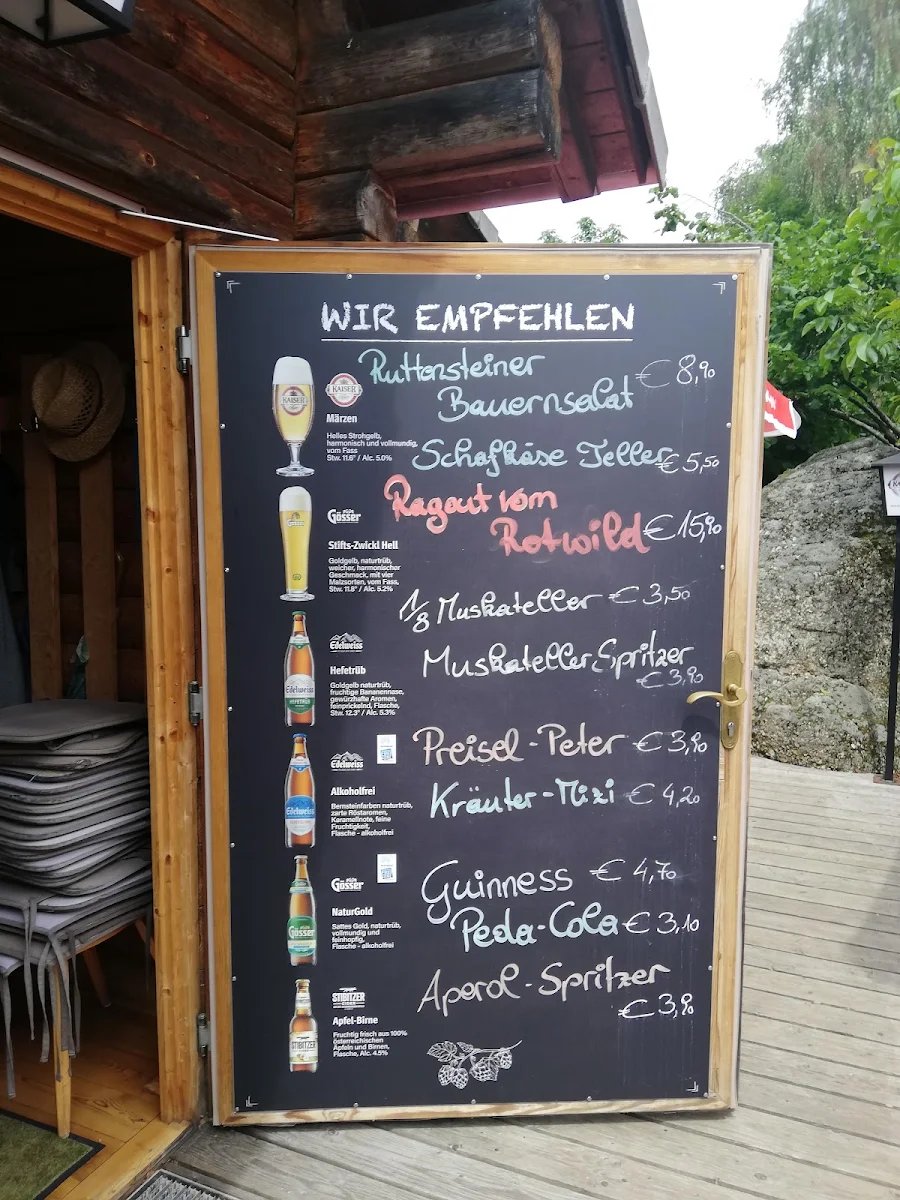 WIR EMPFEHLEN
Ruttensteiner
Bauernsalat € 8,90
Schafkäse Teller € 5,50
Ragout vom
Rotwild € 15,90
1/8 Muskateller € 3,50
Muskateller Spritzer
€ 3,90
Preisel-Peter € 3,90
Kräuter-Mizi € 4,20
Guinness € 4,70
Peda-Cola € 3,10
Aperol-Spritzer
€ 3,90
KAISER
KAISER
Märzen
Helles Strohgelb,
harmonisch und vollmundig,
vom Fass
Stw. 11.6° / Alc. 5.0%
Gösser
Stifts-Zwickl Hell
Goldgelb, naturtrüb,
weicher, harmonischer
Geschmack, mit vier
Malzsorten, vom Fass,
Stw. 11.8° / Alc. 5.2%
Edelweiss
Edelweiss
HEFETRÜB
Hefetrüb
Goldgelb naturtrüb,
fruchtige Bananennase,
gewürzhafte Aromen,
feinprickelnd, Flasche,
Stw. 12.3° / Alc. 5.3%
Edelweiss
Edelweiss
Alkoholfrei
Bernsteinfarben naturtrüb,
zarte Röstaromen,
Karamellnote, feine
Fruchtigkeit,
Flasche - alkoholfrei
Gösser
Gösser
NaturGold
Sattes Gold, naturtrüb,
vollmundig und
feinhopfig,
Flasche - alkoholfrei
STIBITZER
STIBITZER
Apfel-Birne
Fruchtig frisch aus 100%
österreichischen
Äpfeln und Birnen,
Flasche, Alc. 4.5%